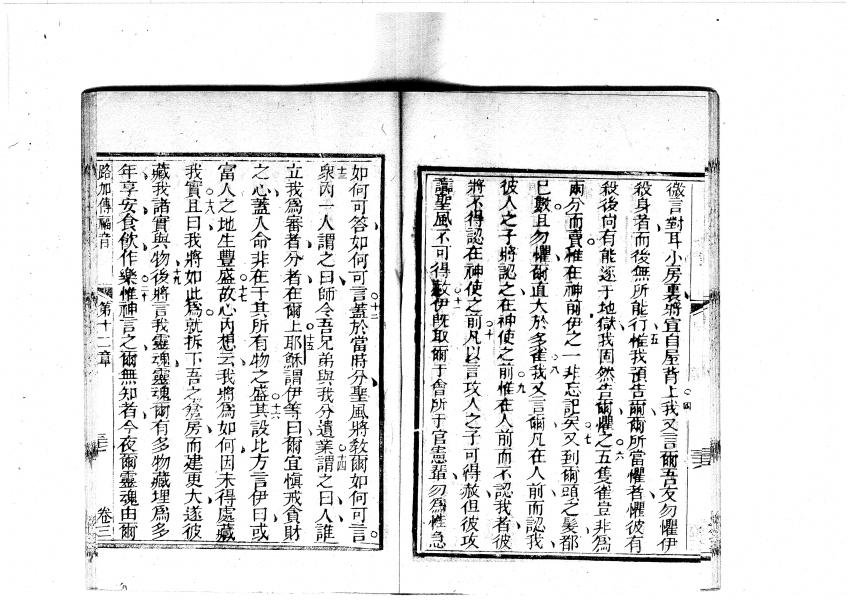 微言對耳小房裏將宣自屋背上我又言爾吾友勿懼伊
殺身者而後無所能行惟我預告爾爾所當懼者懼彼有
殺後尚有能逐于地獄我固然告爾懼之五隻雀豈非為
兩分而賣稚在神前伊之一非忘記矣又到爾頭之髮都
已數且勿懼爾直大於多雀我又言爾凡在人前而認我
彼人之子將認之在神使之前惟在人前而不認我者彼
將不得認在神使之前凡以言攻人之子可得赦但彼攻
聖風不可得赦伊既取爾于會所于官憲輩勿為惟急
如何可答如何可言蓋於當時分聖風將教爾如何可言
衆內一人謂之曰師令吾兄弟與我分遺業謂之曰人誰
立我為審者分者在爾上耶穌謂伊等曰爾宜慎戒貪財
之心蓋人命非在于其所有物之盛其設比方言伊曰或
富人之地生豐盛故心內想云我將為如何因未得處藏
我實且曰我將如此為就拆下吾之倉房而建更大遂彼
藏我諸實與物後將言我靈魂靈魂爾有多物藏埋為多
年享安食飲作樂惟神言之爾無知者今夜爾靈魂由爾
路加傳福音 第十二章 卷三